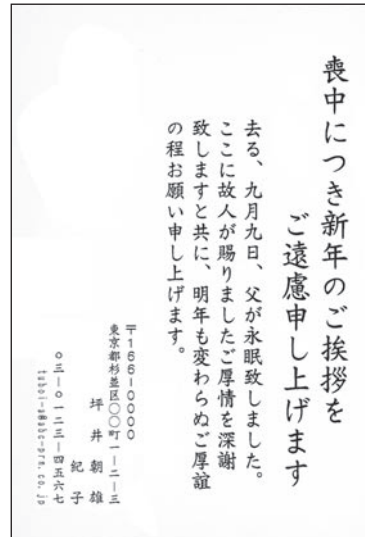 喪中につき新年のご挨拶を
ご遠慮申し上げます
去る、九月九日、父が永眠致しました。
ここに故人が賜りましたご厚情を深謝
致しますと共に、明年も変わらぬご厚誼
の程お願い申し上げます。
〒166-0000
東京都杉並区〇〇町一ー二ー三
坪井朝雄
紀子
〇三ー〇一二三ー四五六七
tuboi-a@abc-prn.co.jp